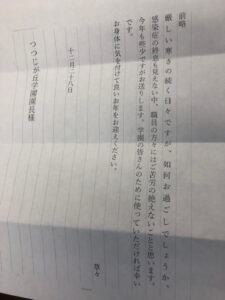 前略
厳しい寒さの続く日々ですが、如何お過ごしでしょうか。
感染症の終息も見えない中、職員の方々にはご苦労の絶えないことと思います。
今年も些少ですがお送りします。学園の皆さんのために使っていただければ幸い
です。
お身体に気を付けて良いお年をお迎えください。
草々
十二月二十八日
つつじが丘学園園長様